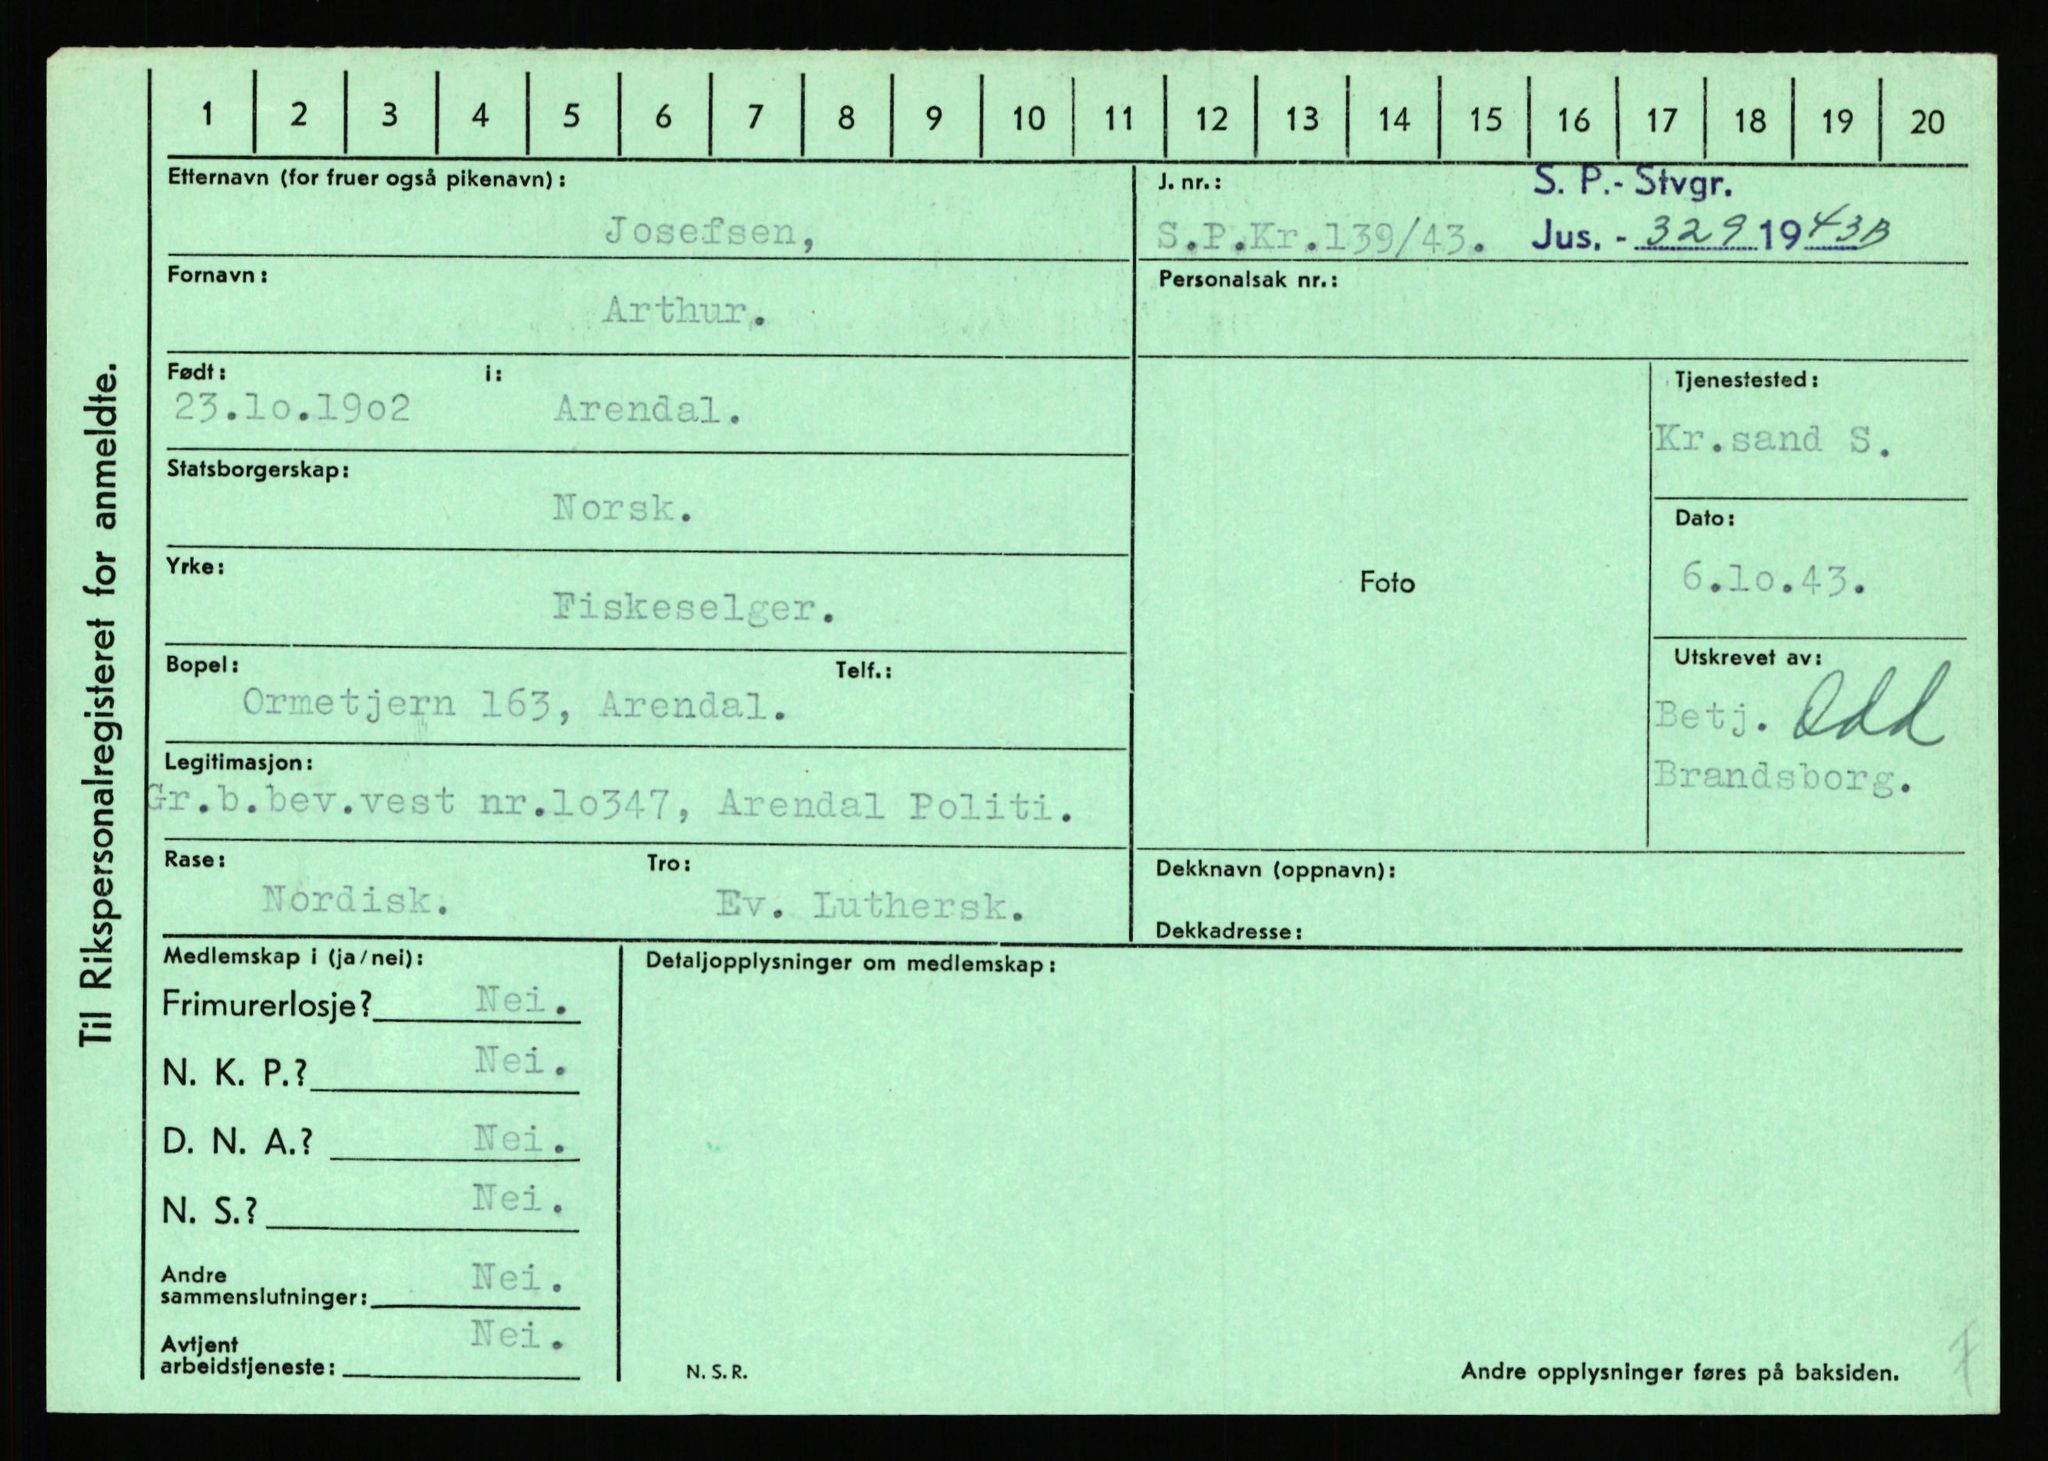 Til Rikspersonalregisteret for anmeldte.
1 2 3 4 5 6 7 8 9 10 11 12 13 14 15 16 17 18 19 20
Etternavn (for fruer også pikenavn):
Josefsen,
J. nr.:
S.P.Kr.139/43.
S. P.- Stvgr.
Jus. - 329 1943B
Fornavn:
Arthur.
Personalsak nr.:
Født: i:
23.lo.19o2 Arendal.
Statsborgerskap:
Norsk.
Yrke:
Fiskeselger.
Bopel: Telf.:
Ormetjern 163, Arendal.
Legitimasjon:
Gr.b.bev.vest nr.lo347, Arendal Politi.
Rase: Tro:
Nordisk. Ev. Luthersk.
Foto
Tjenestested:
Kr.sand S.
Dato:
6.lo.43.
Utskrevet av:
Betj. Odd
Brandsborg.
Dekknavn (oppnavn):
Dekkadresse:
Medlemskap i (ja/nei):
Frimurerlosje? Nei.
N. K. P.? Nei.
D. N. A.? Nei.
N. S.? Nei.
Andre
sammenslutninger: Nei.
Avtjent
arbeidstjeneste: Nei.
Detaljopplysninger om medlemskap:
N. S. R.
Andre opplysninger føres på baksiden.